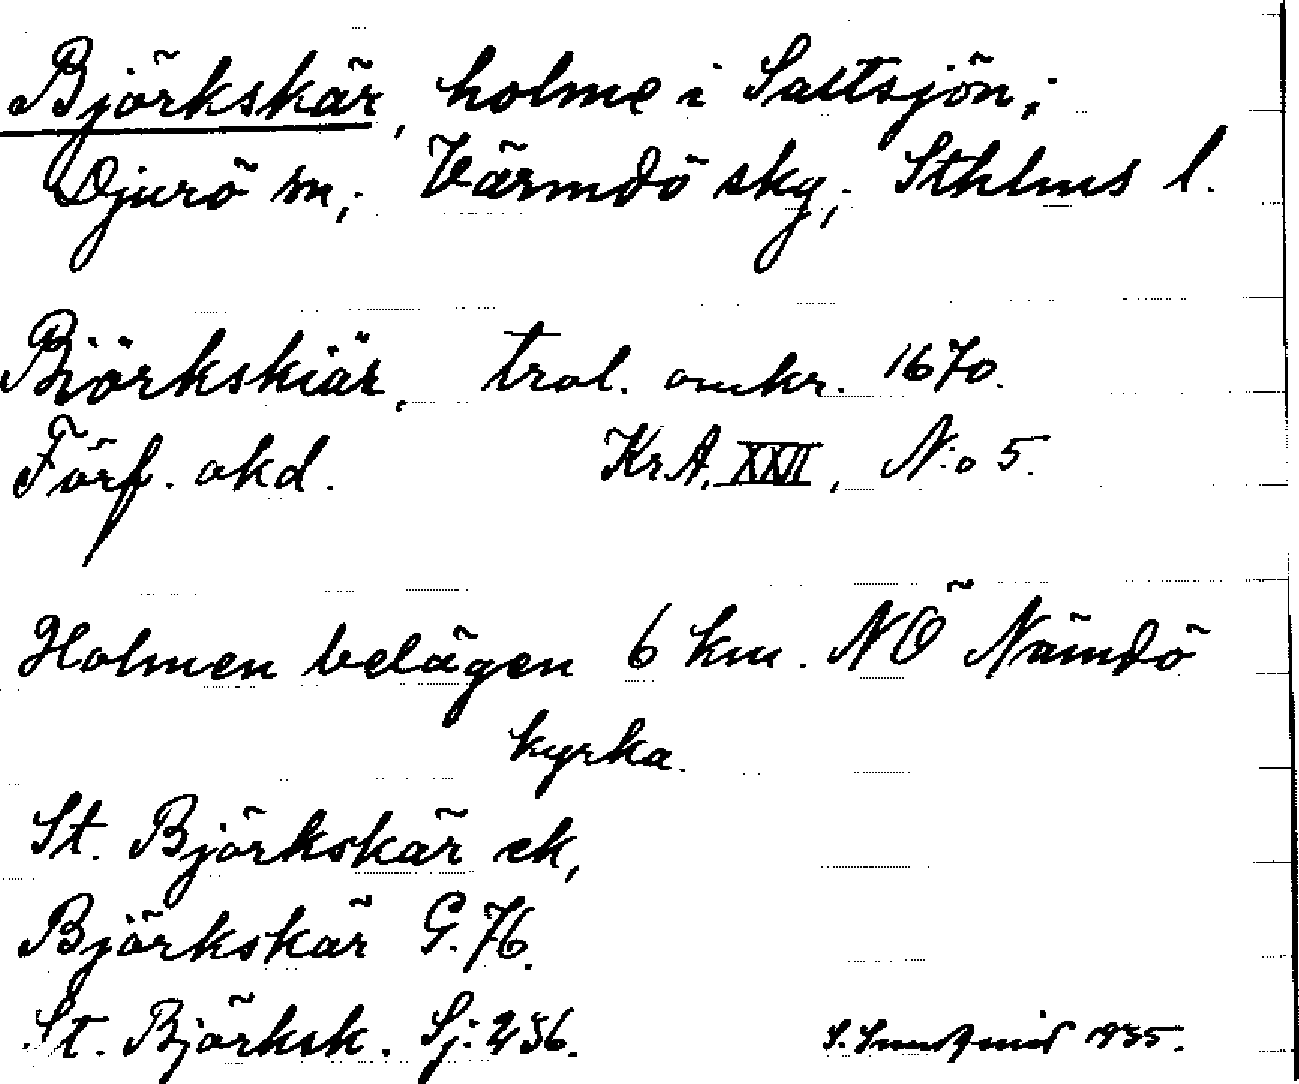 Björkskär, holme i Saltsjön;
Djurö sn; Värmdö skg; Sthlms l.
Biörkskiär, trol. omkr. 1670.
Förf. okd. Kr.A. XXII, N:o 5.
Holmen belägen 6 km. NÖ Nämdö
kyrka.
St. Björkskär ek,
Björkskär G.76.
St. Björksk. Sj: 236.
S. 1935.